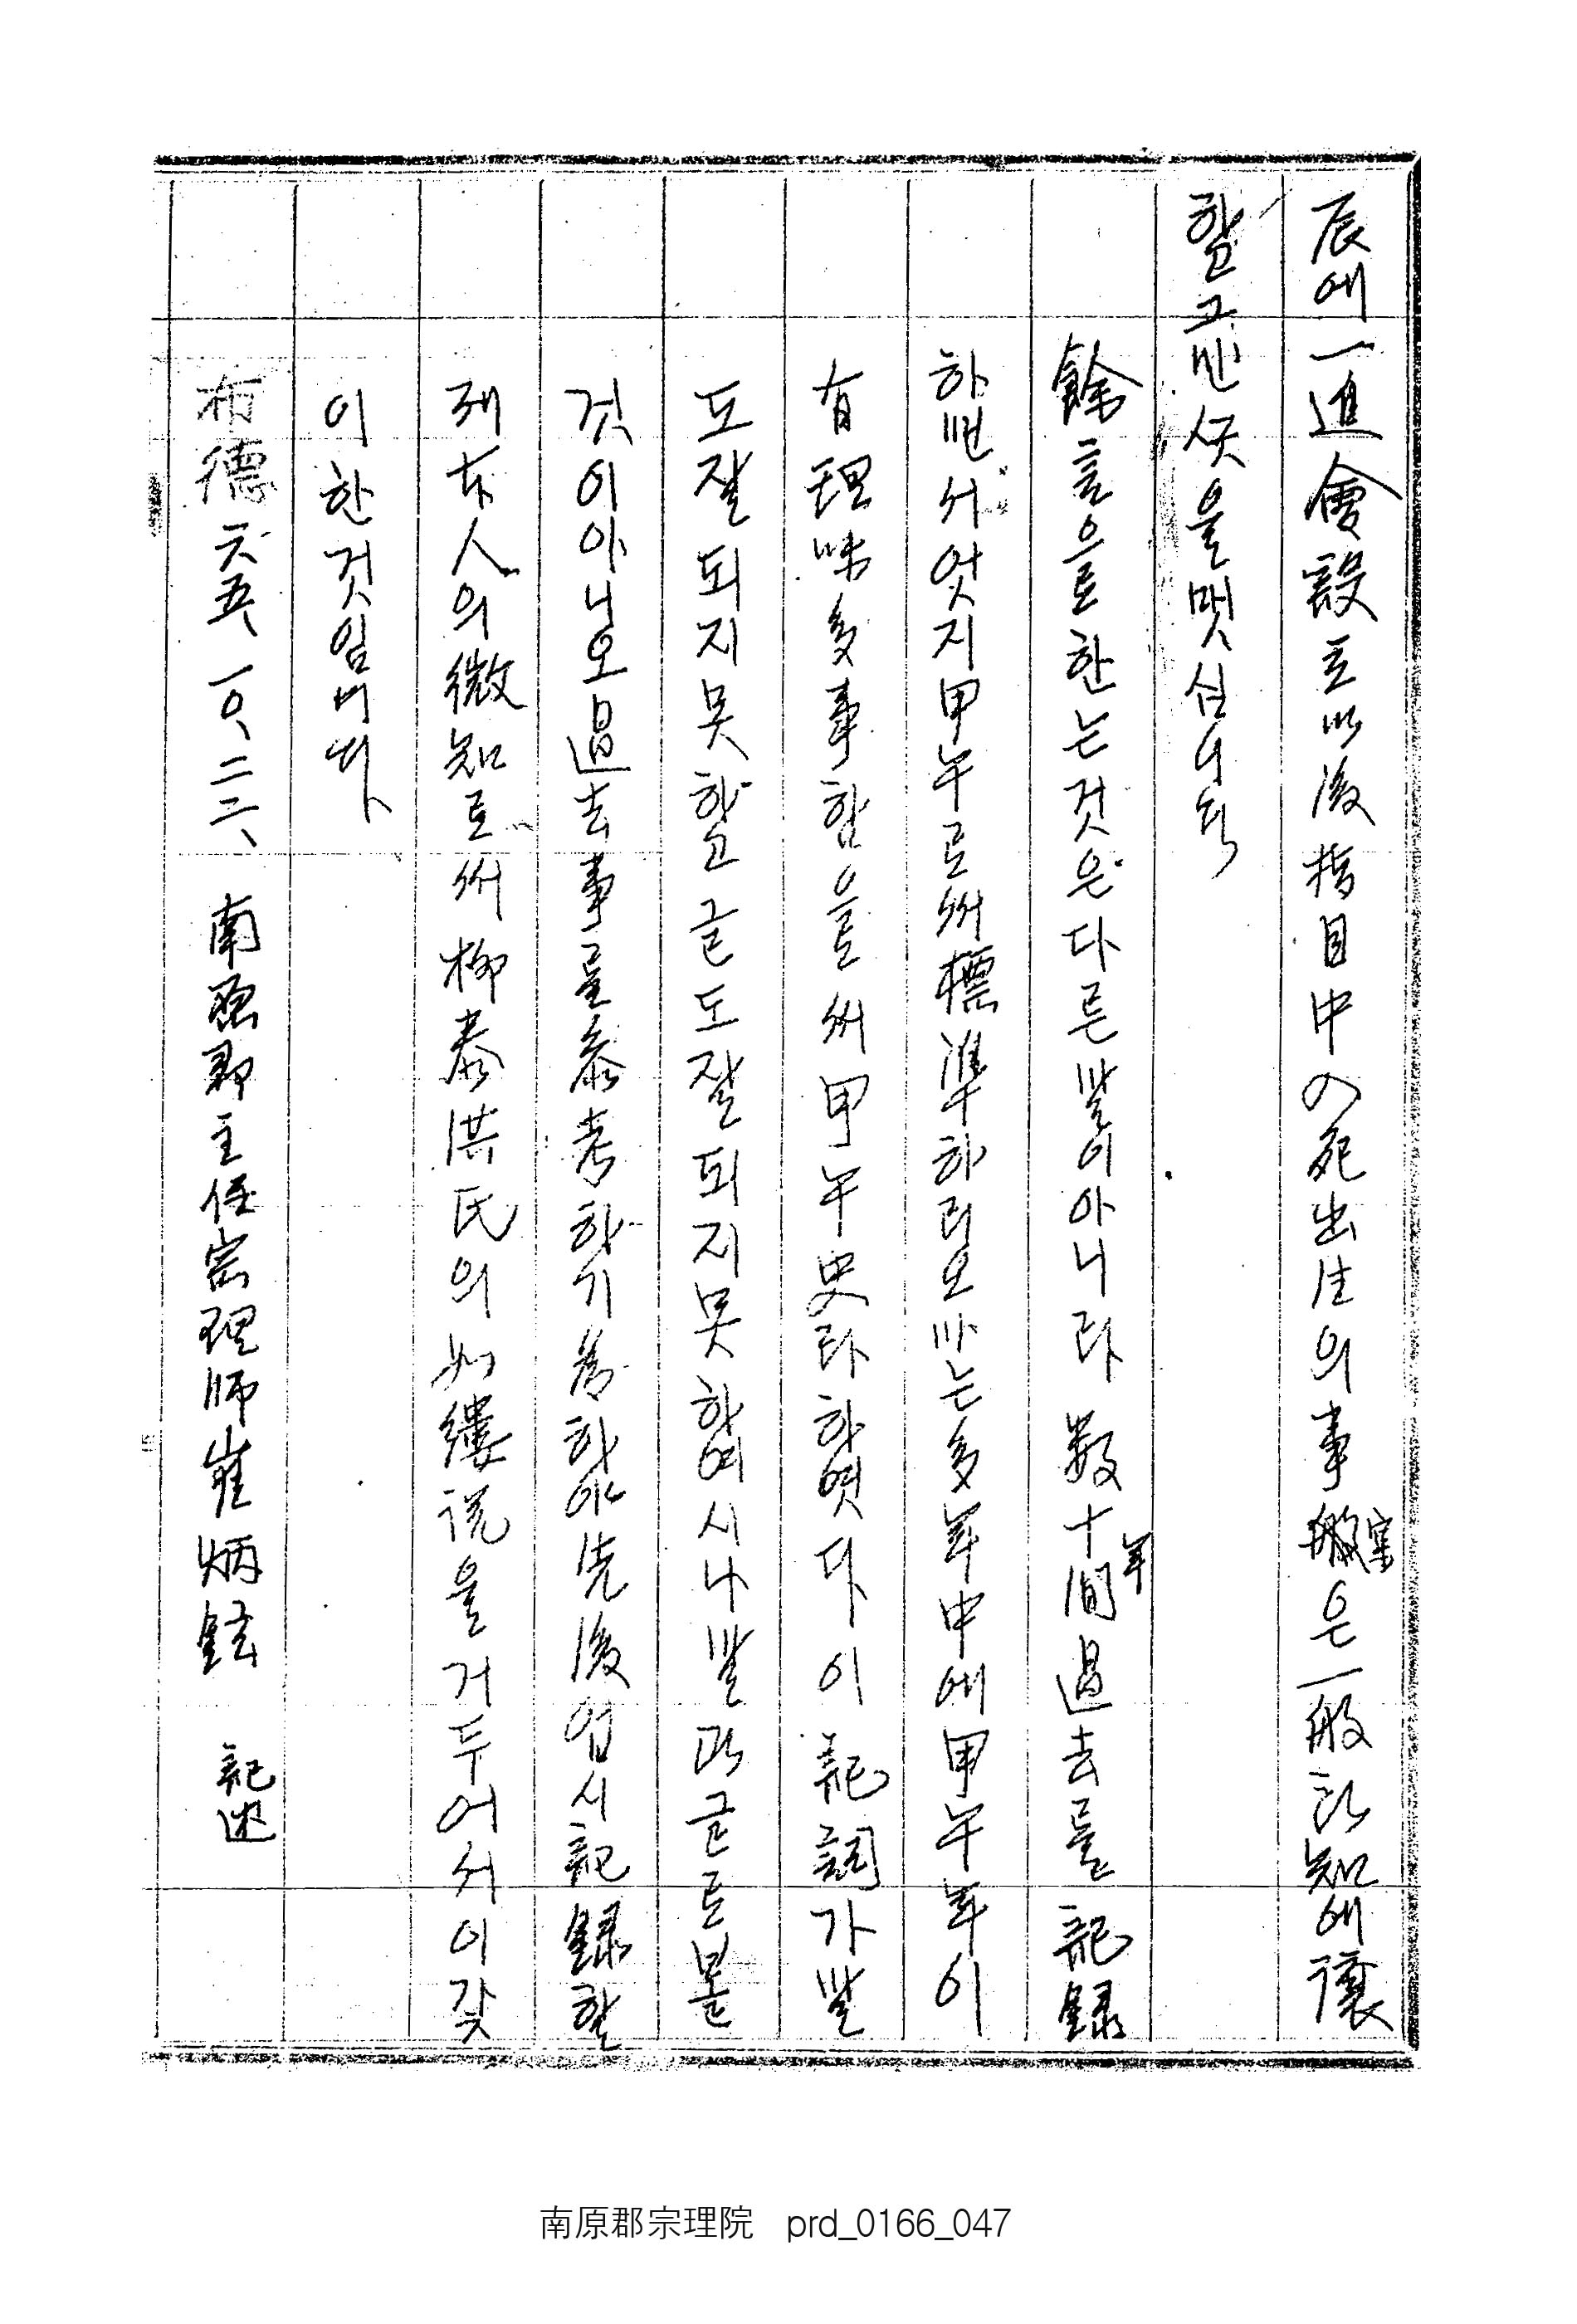 辰에一進會設立以後指目中入死出生의事實은一般認知에讓
할고만 붓을맷심니다
餘言으로한는것은다른말이아니라 數十年間過去를記錄
하면서엇지甲午로써標準하리오마는多年中에甲午年이
有理味多事함을로써甲午史라하엿다이記詞가말
도잘되지못할고글도잘되지못하여시나말과글도볼
것이아니오過去事를參考하기爲하야先後업시記錄할
제本人의微知로써柳泰洪氏의如縷說을거두어서이갓
이한것임니다
布德六五、一〇、二二、南原郡主任宗理師崔炳鉉 記述
南原郡宗理院 prd_0166_047